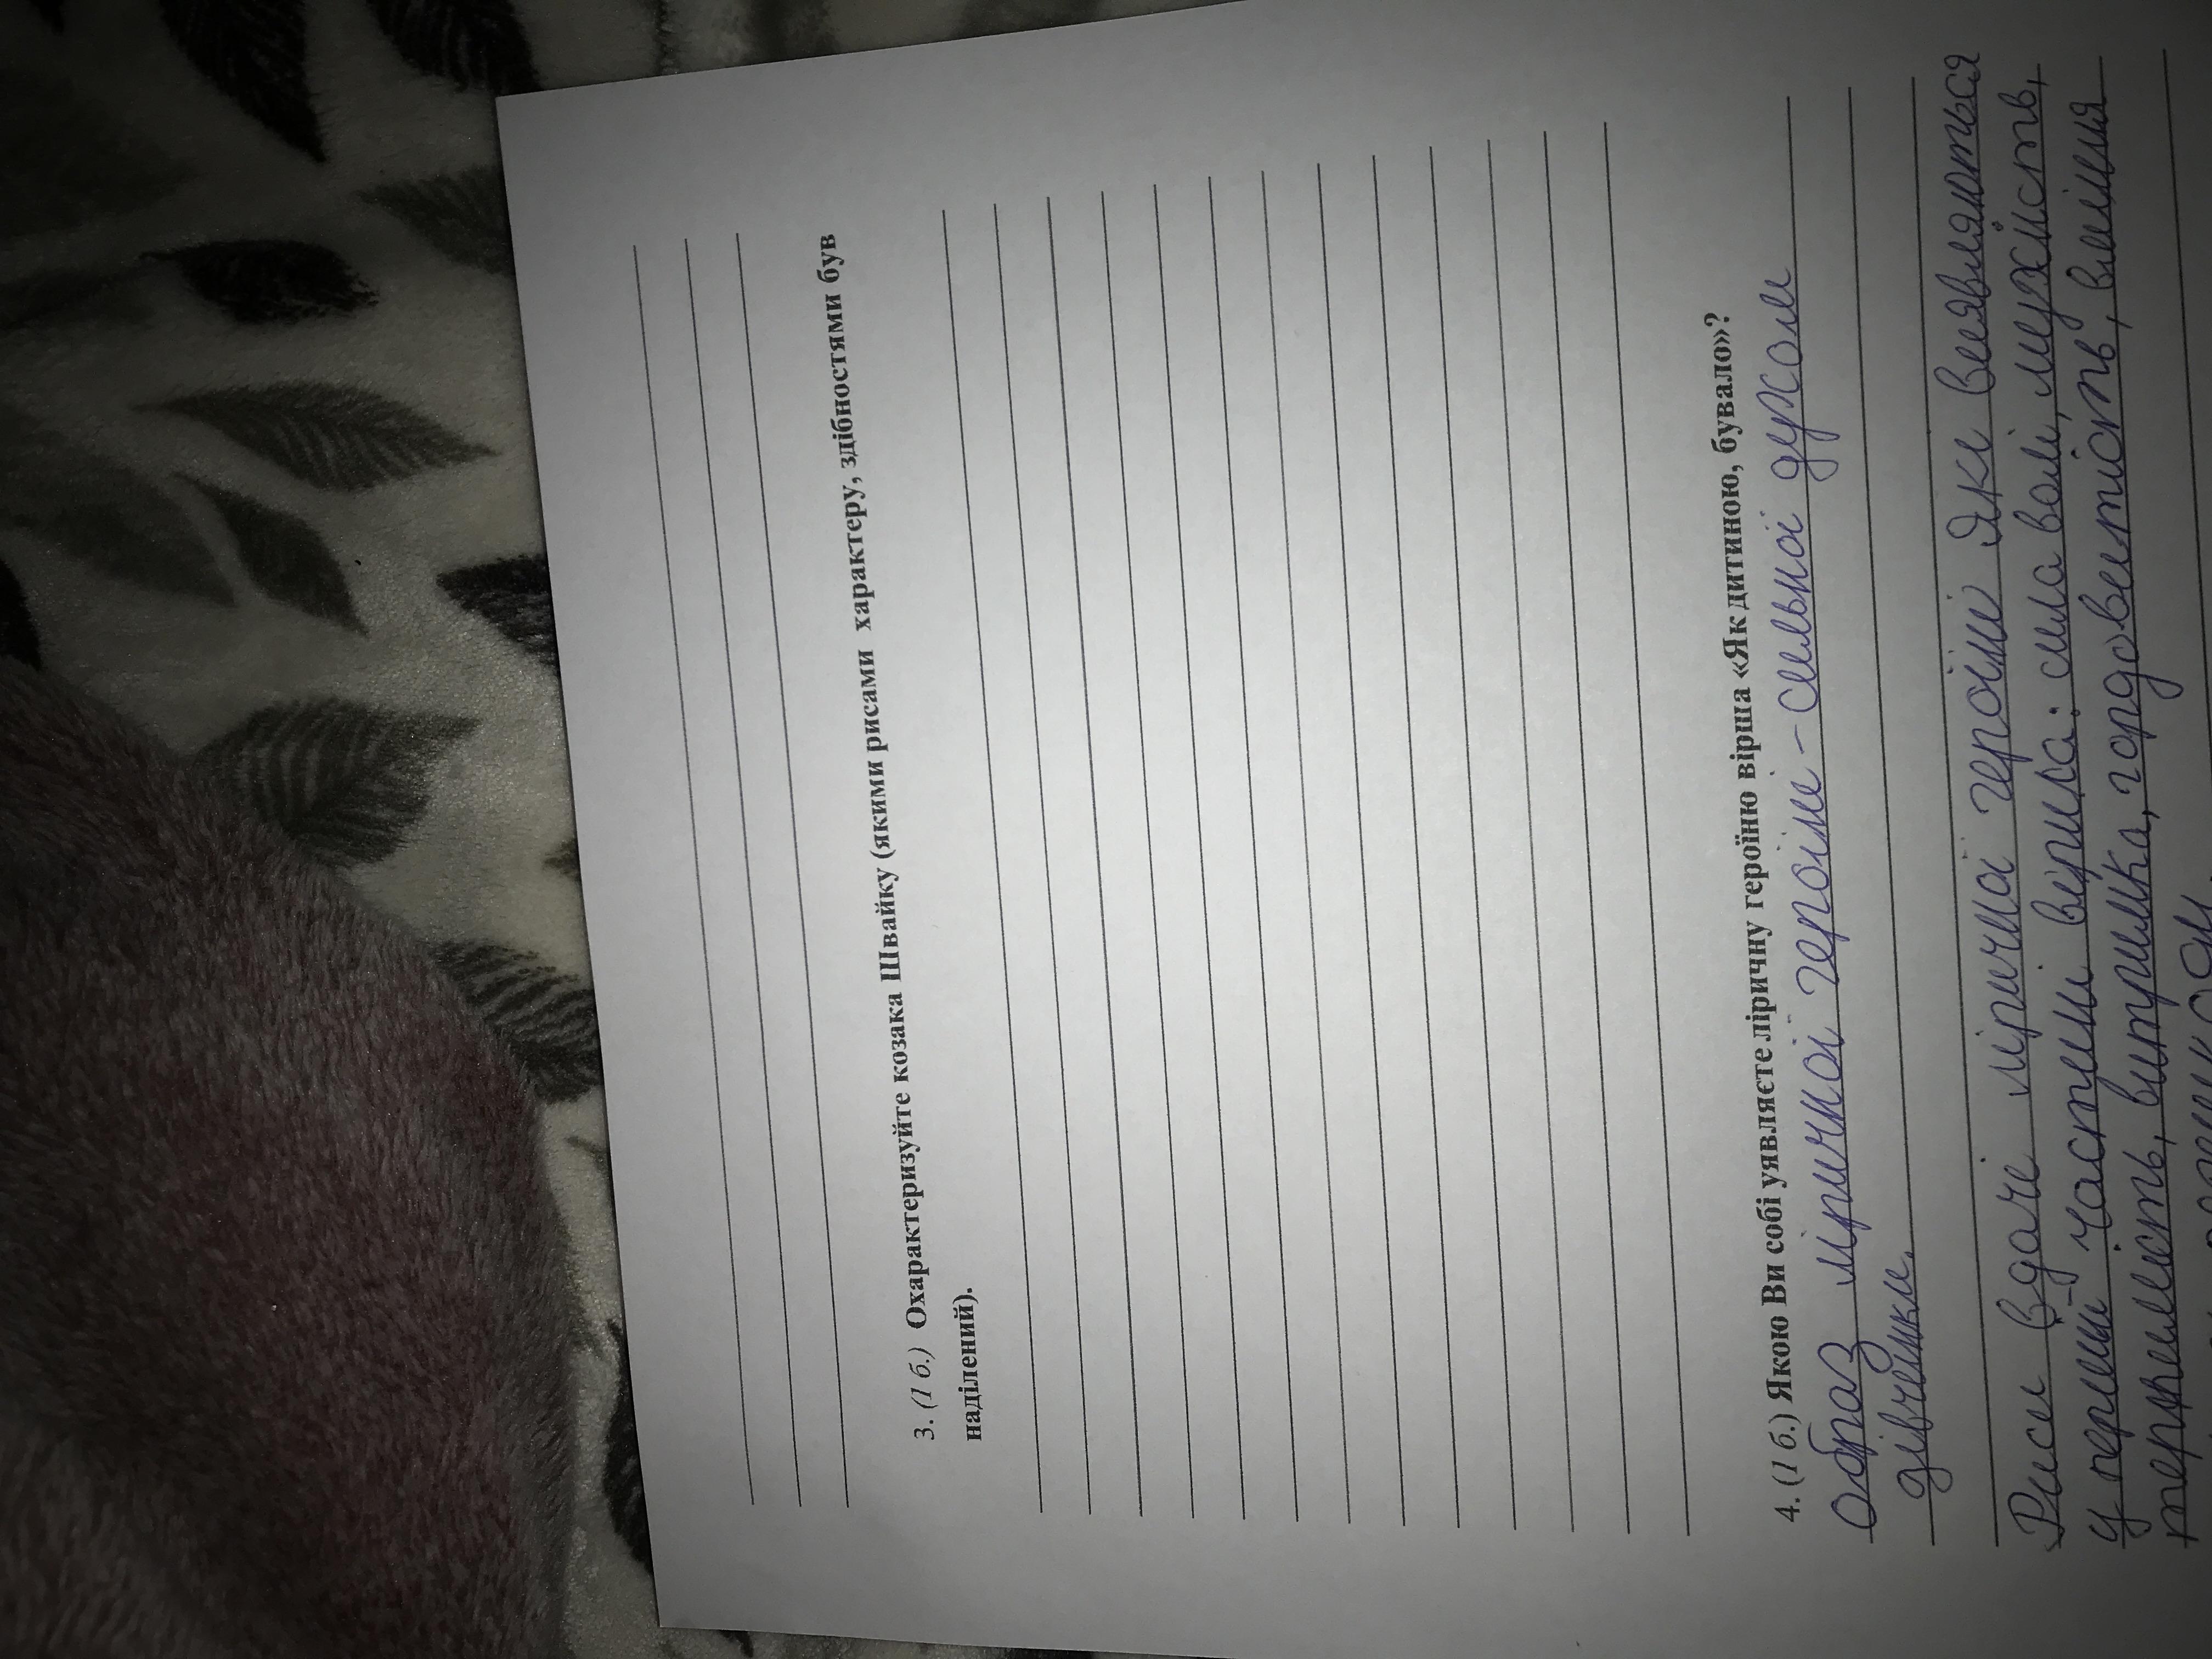 3. (1 б.) Охарактеризуйте козака Швайку (якими рисами характеру, здібностями був
наділений).
4. (1 б.) Якою Ви собі уявляєте ліричну героїню вірша «Як дитиною, бувало»?
Образ ліричної героїні - сильної духом
дівчинки.
Риси вдачі ліричної героїні які виявляються
у першій частині вірша: сила волі, мужність,
терплямість, витримка, гордовитість, вміння